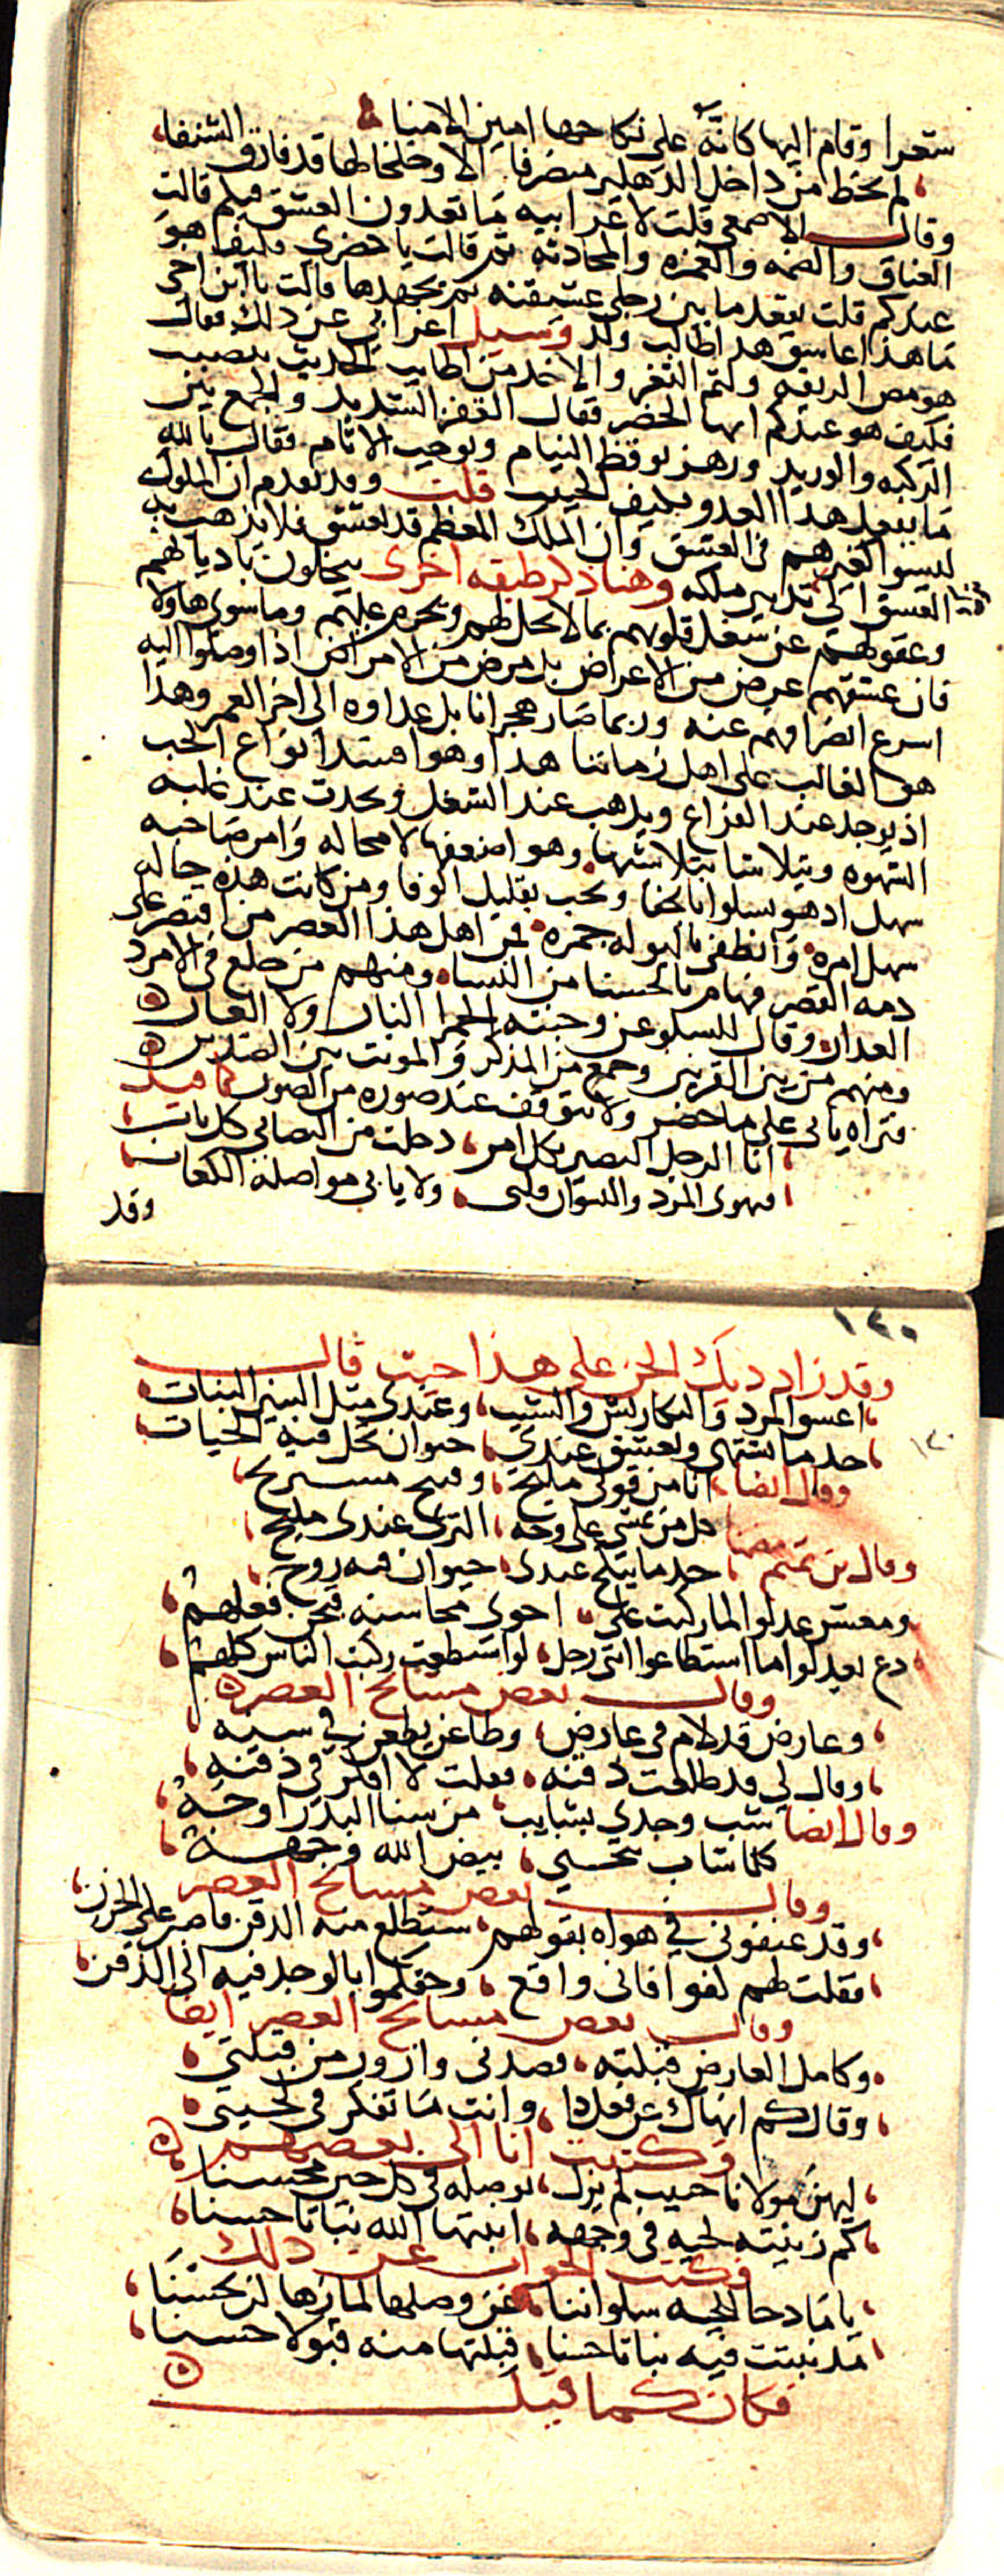 شعرا وقام اليها كانه على نكاحها امين الامنا
لم يخط من داخل الدهليز منصرفا الا وخلخالها قد قارف الشنفا
وقال الاصمعي قلت لاعرابيه ما تعدون العشق فيكم قالت
العناق والضمه والغمزه والمحادثه ثم قالت يا حضري فكيف هو
عندكم قلت يقعد ما بين رجلي عشيقته ثم يجهدها قالت يا ابن اخي
ما هذا عاشق هذا طالب ولد وسيل اعرابي عن ذلك فقال
هو مص الريقه ولثم الثغر والاخذ من اطايب الحديث بنصيب
فكيف هو عندكم ايها الحضر فقال القفز الشديد والجمع بين
الركبه والوريد ورهز يوقظ النيام ويوجب الاثام فقال بالله
ما يفعل هذا العدو فكيف الحبيب قلت وقد تقدم ان الملوك
ليسوا كغيرهم في العشق وان الملك المعظم قد يعشق فلا يذهب به
العشق الى تدبير ملكه وهنا ذكر طبقه اخرى يتخلون باديانهم
وعقولهم عن شغل قلوبهم بما لا يحل لهم ويحرم عليهم وما سوى هاولا
فان عشقهم عرض من الاعراض بل مرض من الامراض اذا وصلوا اليه
اسرع انصرافهم عنه وربما صار هجرانا بل عداوه الى اخر العمر وهذا
هو الغالب على اهل زماننا هذا وهو مبتدا انواع الحب
اذ يوجد عند الفراغ ويذهب عند الشغل ويحدث عند غلبه
الشهوه ويتلاشا بتلاشيها وهو اضعفها لا محاله وامر صاحبه
سهل اذ هو يسلوا بالجفا ويحب بقليل الوفا ومن كانت هذه حاله
سهل امره وانطفى بالبوله جمره فمن اهل هذا العصر من اقتصر على
دمه القصر فهام بالحسنا من النساء ومنهم من خلع في الامرد
العذار وقال للسلو عن وجنته الحمرا النار ولا العار
ومنهم من بين القرينين وجمع من المذكر والمونث بين الضدين
فتراه ياتي على ما حضر ولا يتوقف عند صوره من الصور كما قيل
انا الرجل البصير بكل امر دخلت من التصابي كل باب
فهوى المرد والنسوان قلبي ولا يابى مواصلة الكعاب
وقد
١٢٠
وقد زاد ديك الجن على هذا حيث قال
اعشق المرد والنكاريش والشيب وعندي مثل البنين البنات
حد ما يشتهى ويعشق عندي حيوان تحل فيه الحيات
١٢٠
وقال ايضا انا من قولي مليح وقبيح مستريح
كل من يمشي على وجه الثرى عندي مليح
وقال بن تميم حد ما ينكح عندي حيوان فيه روح
ومعشر عدلوا لما ركبت على احوى محاسنه فتحن فعلهم
دع يعدلوا ما استطاعوا انني رجل لو استطعت ركبت الناس كلهم
وقال بعض مشايخ العصر
وعارض قد لام في عارض وطاعن يطعن في سنه
وقال لي قد طلعت ذقنه فقلت لا افكر في ذقنه
وقال ايضا شب وجدي بشايب من سنا البدر اوجه
كلما شاب ينحني بيض الله وجهه
وقال بعض مشايخ العصر
وقد عنفوني في هواه بقولهم ستطلع منه الذقن فاصبر على الحزن
فقلت لهم كفوا فاني واقع وحقكموا بالوجد فيه الى الذقن
وقال بعض مشايخ العصر ايضا
وكامل العارض قبلته فصدني وازور من قبلتي
وقال كم انهاك عن فعل ذا وانت ما تفكر في لحيتي
وكتبت انا الى بعضهم
ليهن مولانا حبيب لم يزل بوصله في كل حين محسنا
كم زينته لحيه في وجهه انبتها الله نباتا حسنا
فكتب الجواب عن ذلك
يا مادحا للحيه سلواننا عن وصلها لما نراها لن يحسنا
مذ نبتت فيه نباتا حسنا قبلتها منه قبولا حسنا
فكان كما قيل